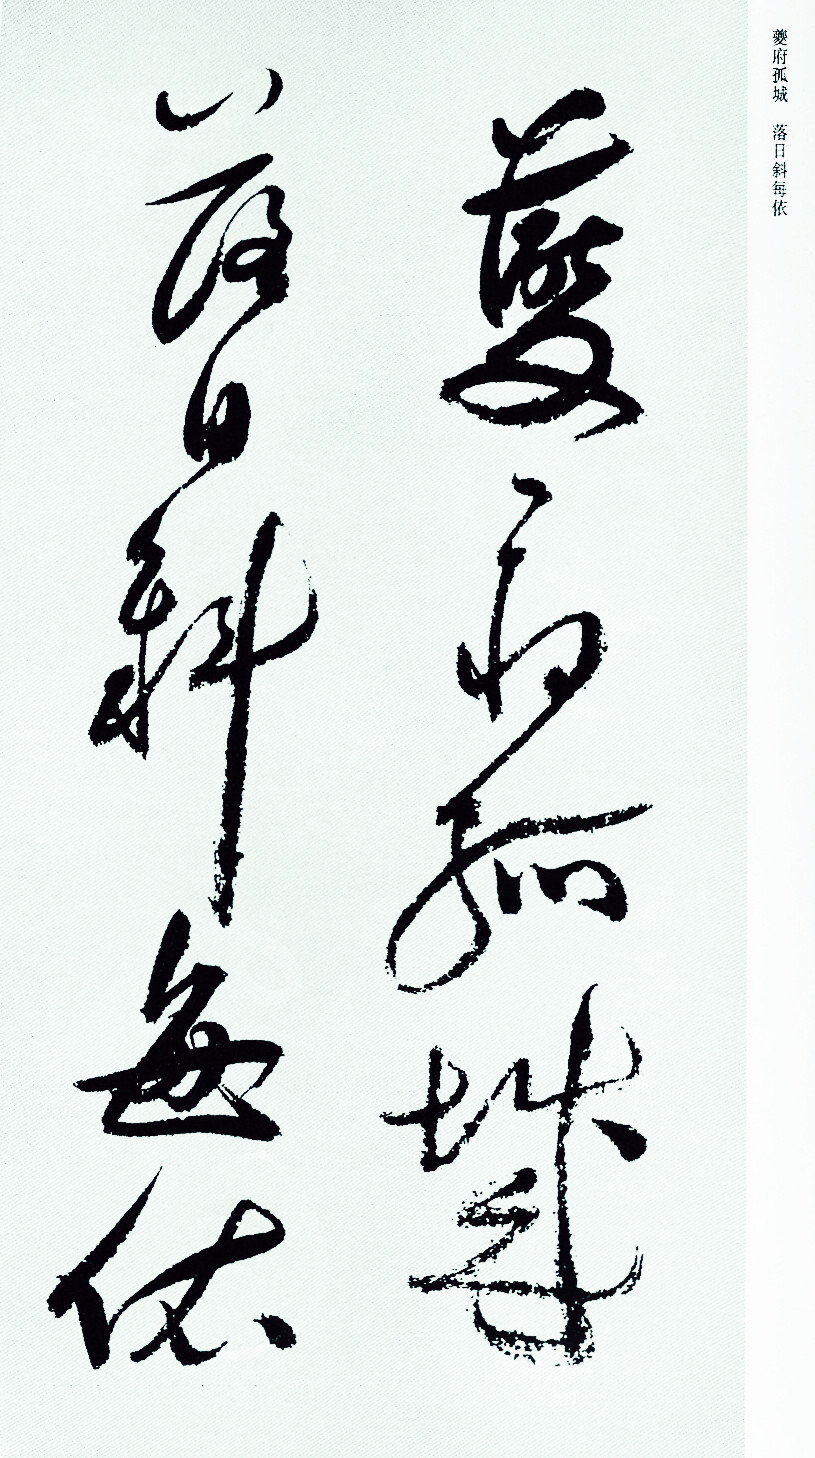 夔府孤城　落日斜每依
夔府孤城
落日斜每依